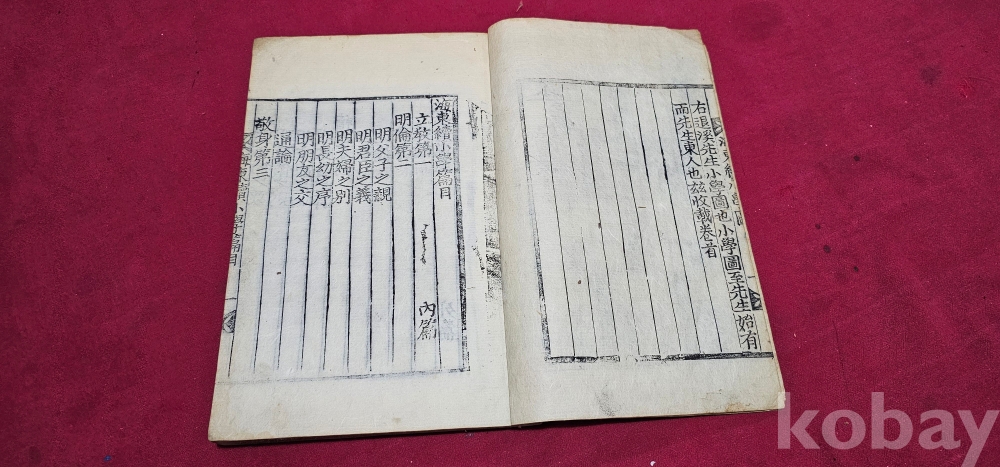 右退溪先生小學圖也小學圖至先生始有
而先生東人也玆收載卷首
海東續小學篇目
內篇
立敎第一
明倫第二
明父子之親
明君臣之義
明夫婦之別
明長幼之序
明朋友之交
通論
敬身第三
海東續小學篇目
kobay